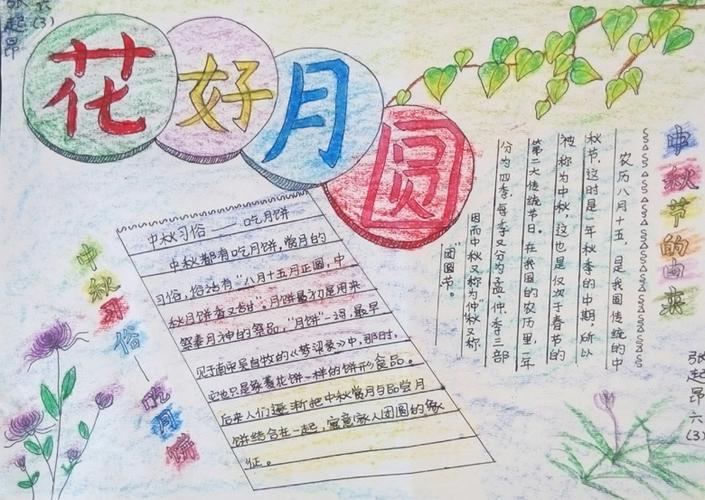 张起昂
六(3)
花好月圆
中秋节的由来
农历八月十五，是我国传统的中
秋节，这时是一年秋季的中期，所以
被称为中秋，这也是仅次于春节的
第二大传统节日。在我国的农历里，一年
分为四季，每季又分为孟、仲、季三部
因而中秋又称为"仲"秋又称
"团圆节"。
中秋习俗—吃月饼
中秋习俗——吃月饼
中秋都有吃月饼，赏月的
习俗，俗话有"八月十五月正圆，中
秋月饼香又甜"。月饼最初是用来
祭奉月神的祭品，"月饼"一词，最早
见于南宋吴自牧的《梦粱录》中，那时，
它也只是象菱花饼一样的饼形食品。
后来人们逐渐把中秋赏月与品尝月
饼结合在一起，寓意家人团圆的象
征。
张起昂 六(3)